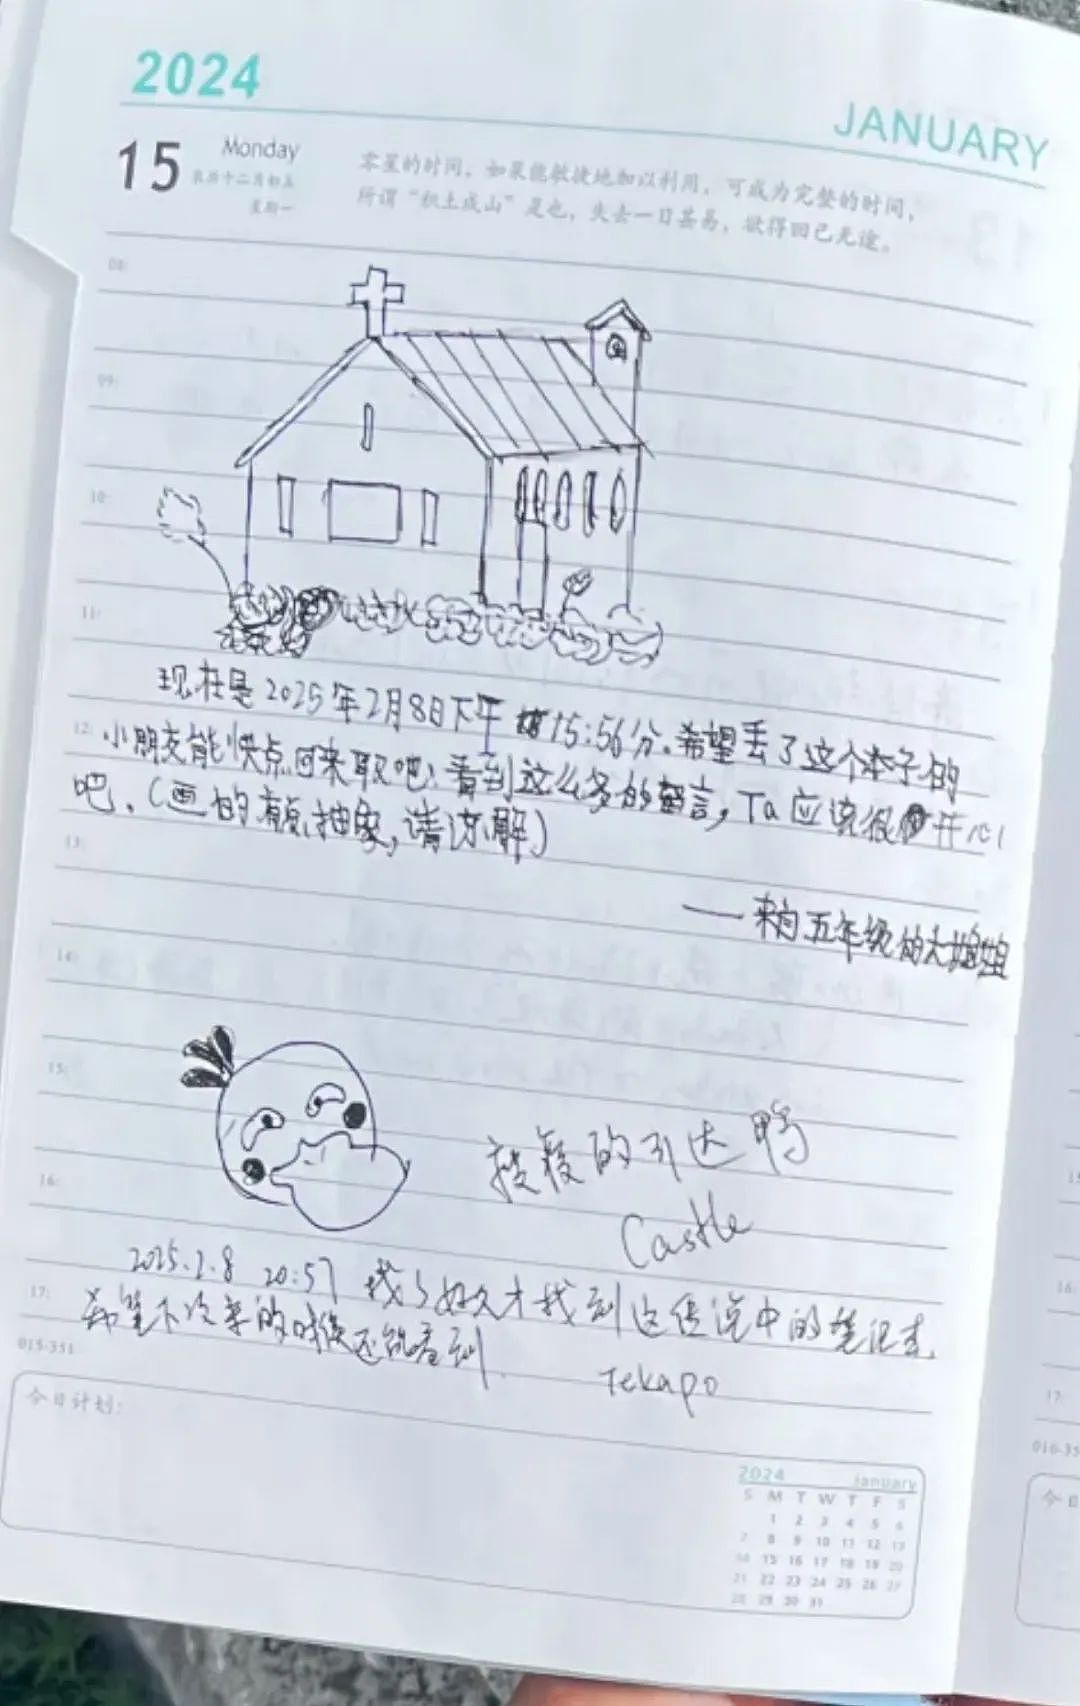 2024
JANUARY
15
Monday
农历十二月初五
星期一
零星的时间，如果能敏捷地加以利用，可成为完整的时间，
所谓“积土成山”是也，失去一日甚易，欲得回已无途。
08:
09:
10:
11:
现在是2025年2月8日下午15:56分.希望丢了这个本子的
12:
小朋友能快点回来取吧!看到这么多的留言，Ta应该很开心
吧.(画的有点抽象,请谅解)
13:
——来自五年级的大姐姐
14:
15:
的可达鸭
Castle
16:
2025.2.8 20:57 找了好久才找到这传说中的笔记本
17:
希望下次来的时候还能看到
Tekapo
015-351
今日计划:
2024 January
S M T W T F S
1 2 3 4 5 6
7 8 9 10 11 12 13
14 15 16 17 18 19 20
21 22 23 24 25 26 27
28 29 30 31
15
16:
17:
今日